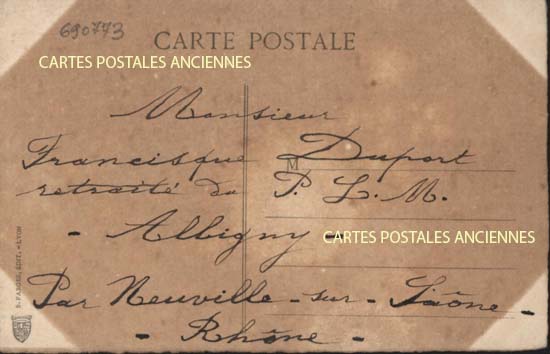 690773
CARTE POSTALE
CARTES POSTALES ANCIENNES
Monsieur
Francisque Duport
M
retraité du P. L. M.
- Albigny -
CARTES POSTALES ANCIENNES
Par Neuville - sur - Saône -
- Rhône -
S. FARGES, EDIT. - LYON